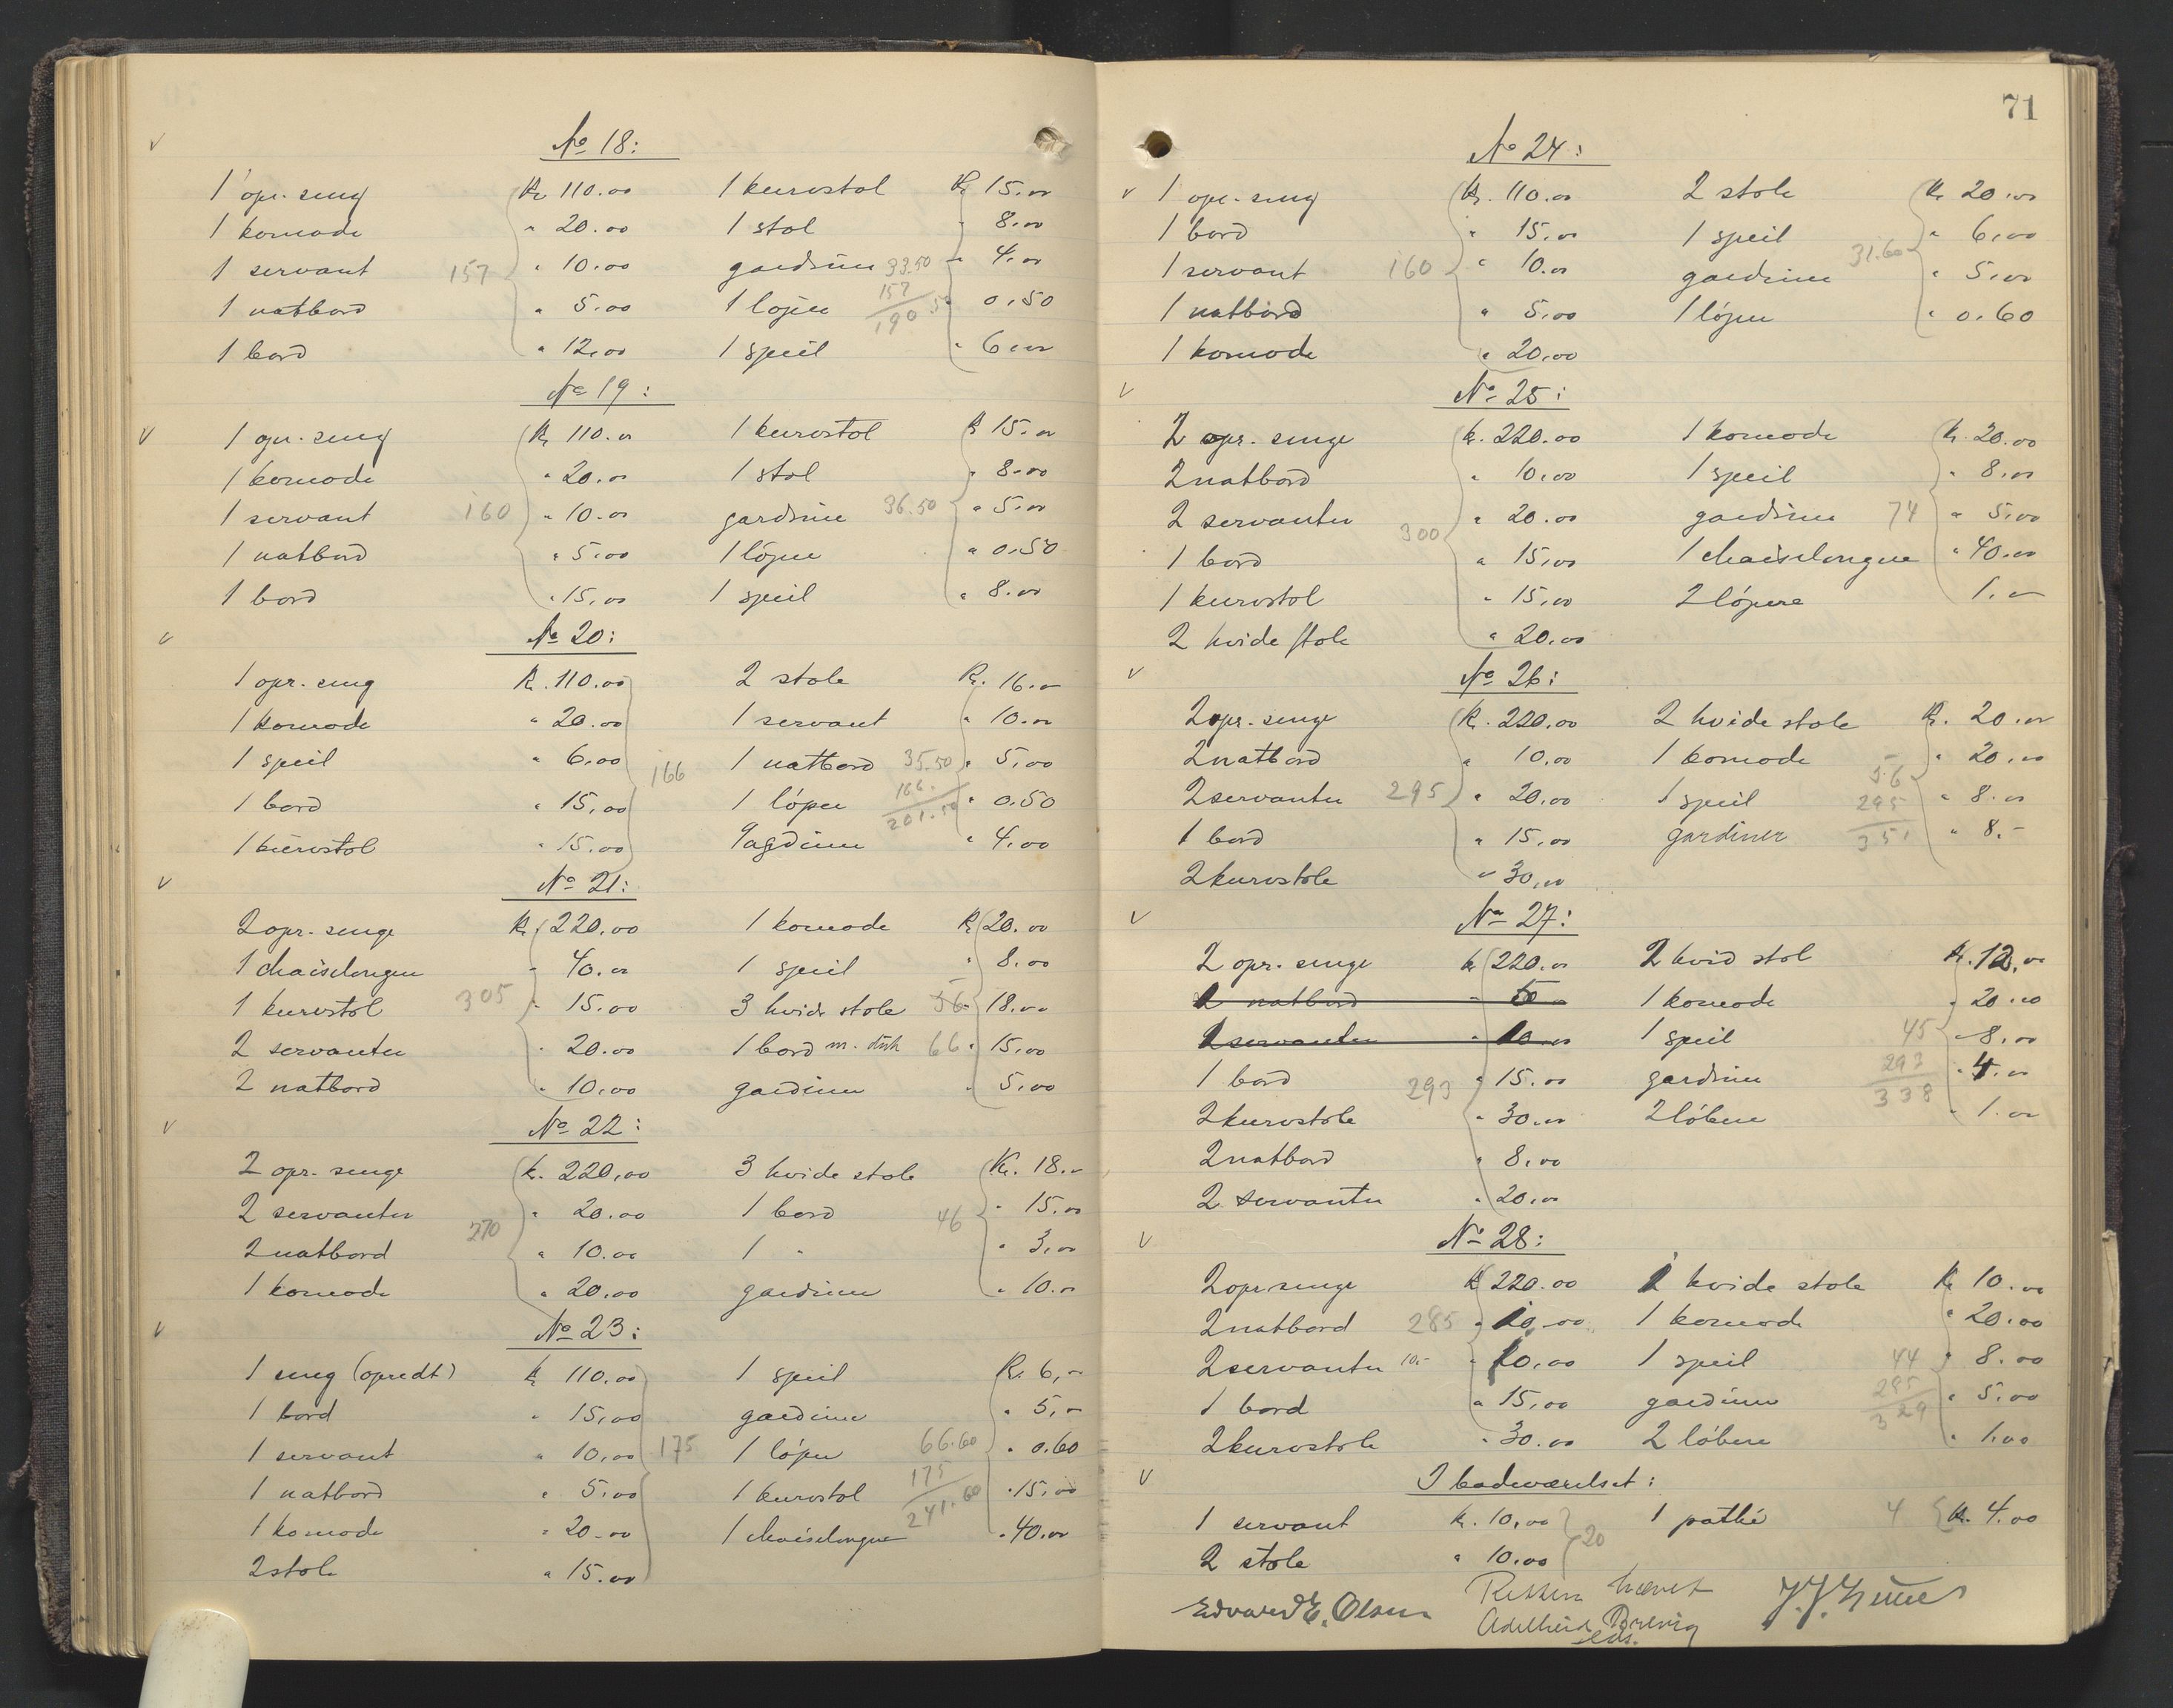 71
No 18:
1 opr. seng Kr. 110.00 1 kurvstol Kr. 15.00
1 komode " 20.00 1 stol " 8.00
1 servant 157 " 10.00 gardiner 33.50 " 4.00
1 natbord " 5.00 1 løper 157 " 0.50
190.50
1 bord " 12.00 1 speil " 6.00
No 19:
1 opr. seng Kr. 110.00 1 kurvstol Kr. 15.00
1 komode " 20.00 1 stol " 8.00
1 servant 160 " 10.00 gardiner 36.50 " 5.00
1 natbord " 5.00 1 løper " 0.50
1 bord " 15.00 1 speil " 8.00
No 20:
1 opr. seng Kr. 110.00 2 stole Kr. 16.00
1 komode " 20.00 1 servant " 10.00
1 speil " 6.00 166 1 natbord 35.50 " 5.00
1 bord " 15.00 1 løper 166. " 0.50
201.50
1 kurvstol " 15.00 gagdiner " 4.00
No 21:
2 opr. senge Kr. 220.00 1 komode Kr. 20.00
1 chaiselongue " 40.00 1 speil " 8.00
1 kurvstol 305 " 15.00 3 hvide stole 56 " 18.00
2 servanter " 20.00 1 bord m. duk 66 " 15.00
2 natbord " 10.00 gardiner " 5.00
No 22:
2 opr. senge Kr. 220.00 3 hvide stole Kr. 18.00
2 servanter 270 " 20.00 1 bord 46 " 15.00
2 natbord " 10.00 1 " " 3.00
1 komode " 20.00 gardiner " 10.00
No 23:
1 seng (opredt) Kr. 110.00 1 speil Kr. 6,-
1 bord " 15.00 gardiner " 5,-
1 servant " 10.00 175 1 løper 66.60 " 0.60
1 natbord " 5.00 1 kurvstol 175 " 15.00
241.60
1 komode " 20.00 1 chaiselongue " 40.00
2 stole " 15.00
No 24:
1 opr. seng Kr. 110.00 2 stole Kr. 20.00
1 bord " 15.00 1 speil 31.60 " 6.00
1 servant 160 " 10.00 gardiner " 5.00
1 natbord " 5.00 1 løper " 0.60
1 komode " 20.00
No 25:
2 opr. senge Kr. 220.00 1 komode Kr. 20.00
2 natbord " 10.00 1 speil " 8.00
2 servanter 300 " 20.00 gardiner 74 " 5.00
1 bord " 15.00 1 chaiselongue " 40.00
1 kurvstol " 15.00 2 løpere 1.-
2 hvide stole " 20.00
No 26:
2 opr. senge Kr. 220.00 2 hvide stole Kr. 20.00
2 natbord " 10.00 1 komode 56 " 20.00
2 servanter 295 " 20.00 1 speil 295 " 8.00
1 bord " 15.00 gardiner 351 " 8.-
2 kurvstole " 30.00
No 27:
2 opr. senge Kr. 220.00 2 hvid stol Kr. 12.00
2 natbord 1 komode " 20.00
2 servanter " 10.00 1 speil 45 " 8.00
1 bord 293 " 15.00 gardiner 293 " 4.00
2 kurvstole " 30.00 2 løbere 338 " 1.00
2 natbord " 8.00
2 servanter " 20.00
No 28:
2 opr senge Kr. 220.00 2 hvide stole Kr. 10.00
2 natbord 285 " 10.00 1 komode " 20.00
2 servanter 10.- " 10.00 1 speil 44 " 8.00
1 bord " 15.00 gardiner 285 " 5.00
329
2 kurvstole " 30.00 2 løbere " 1.00
I badeværelset:
1 servant Kr. 10.00 20 1 pathe 4 Kr. 4.00
2 stole " 10.00
Edvard E. Olsen
Adelheid Brevig